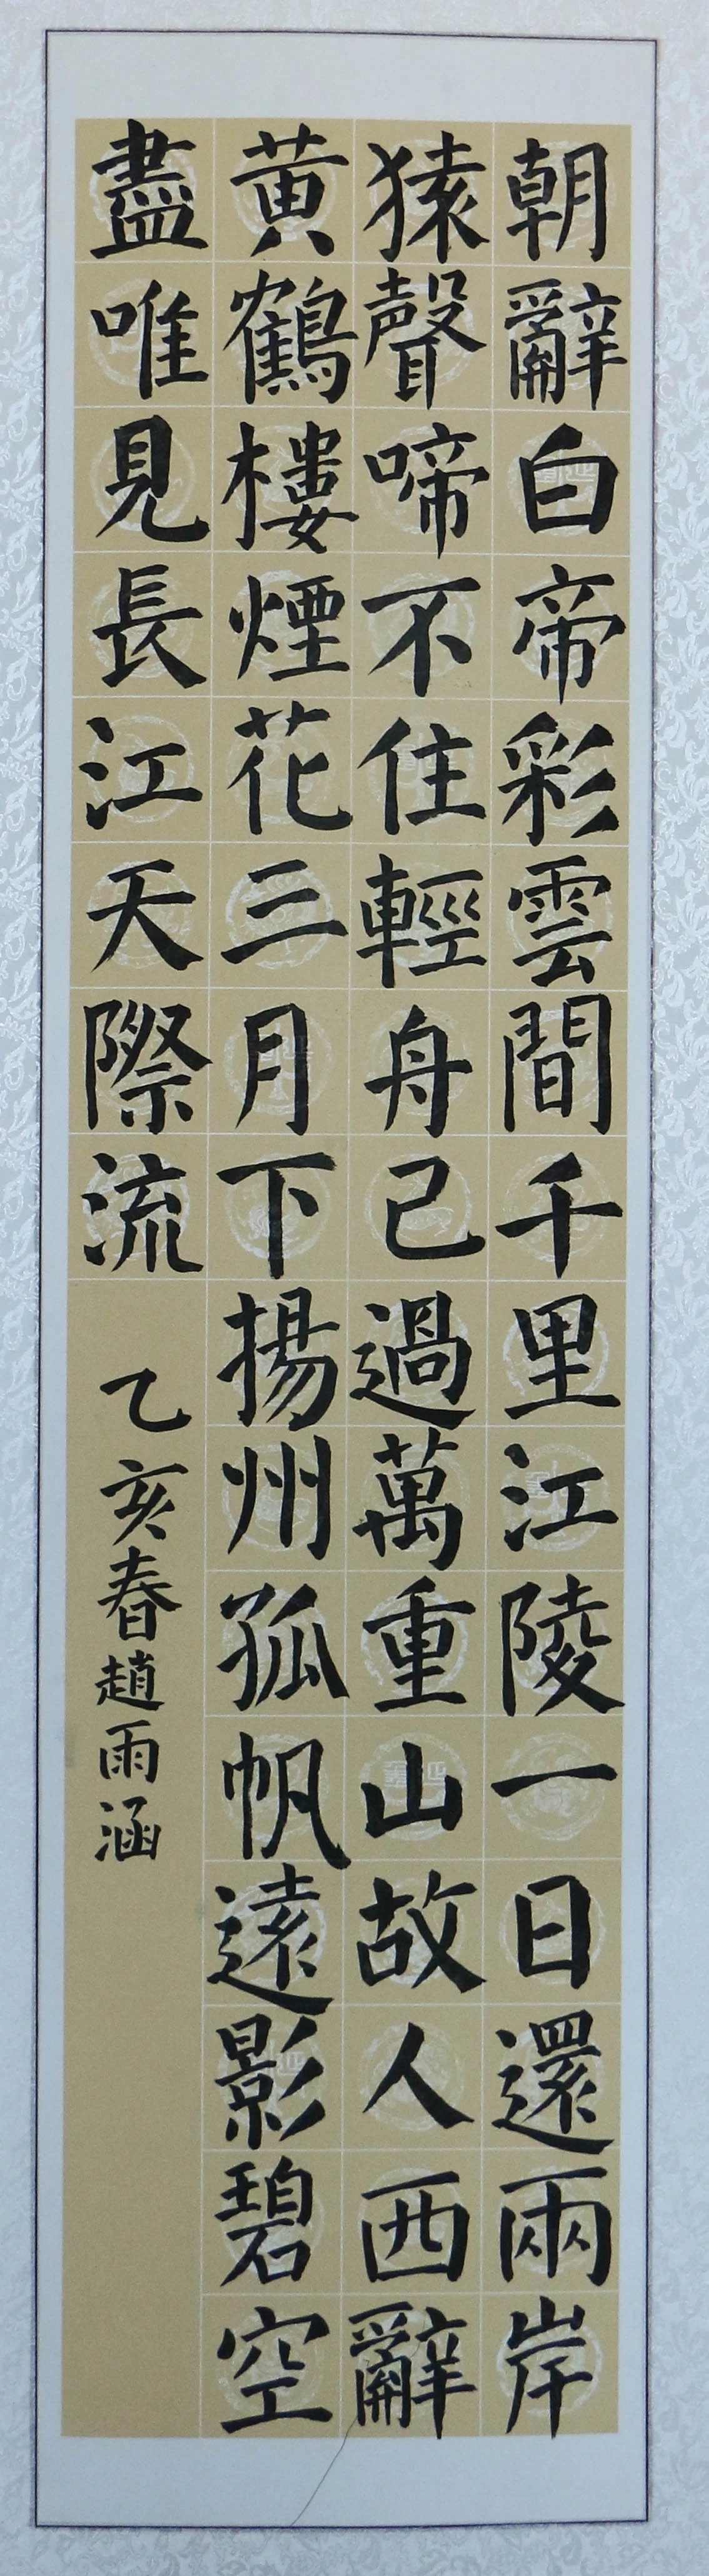 朝辭白帝彩雲間千里江陵一日還兩岸
猿聲啼不住輕舟已過萬重山故人西辭
黄鶴樓煙花三月下揚州孤帆遠影碧空
盡唯見長江天際流
乙亥春趙雨涵